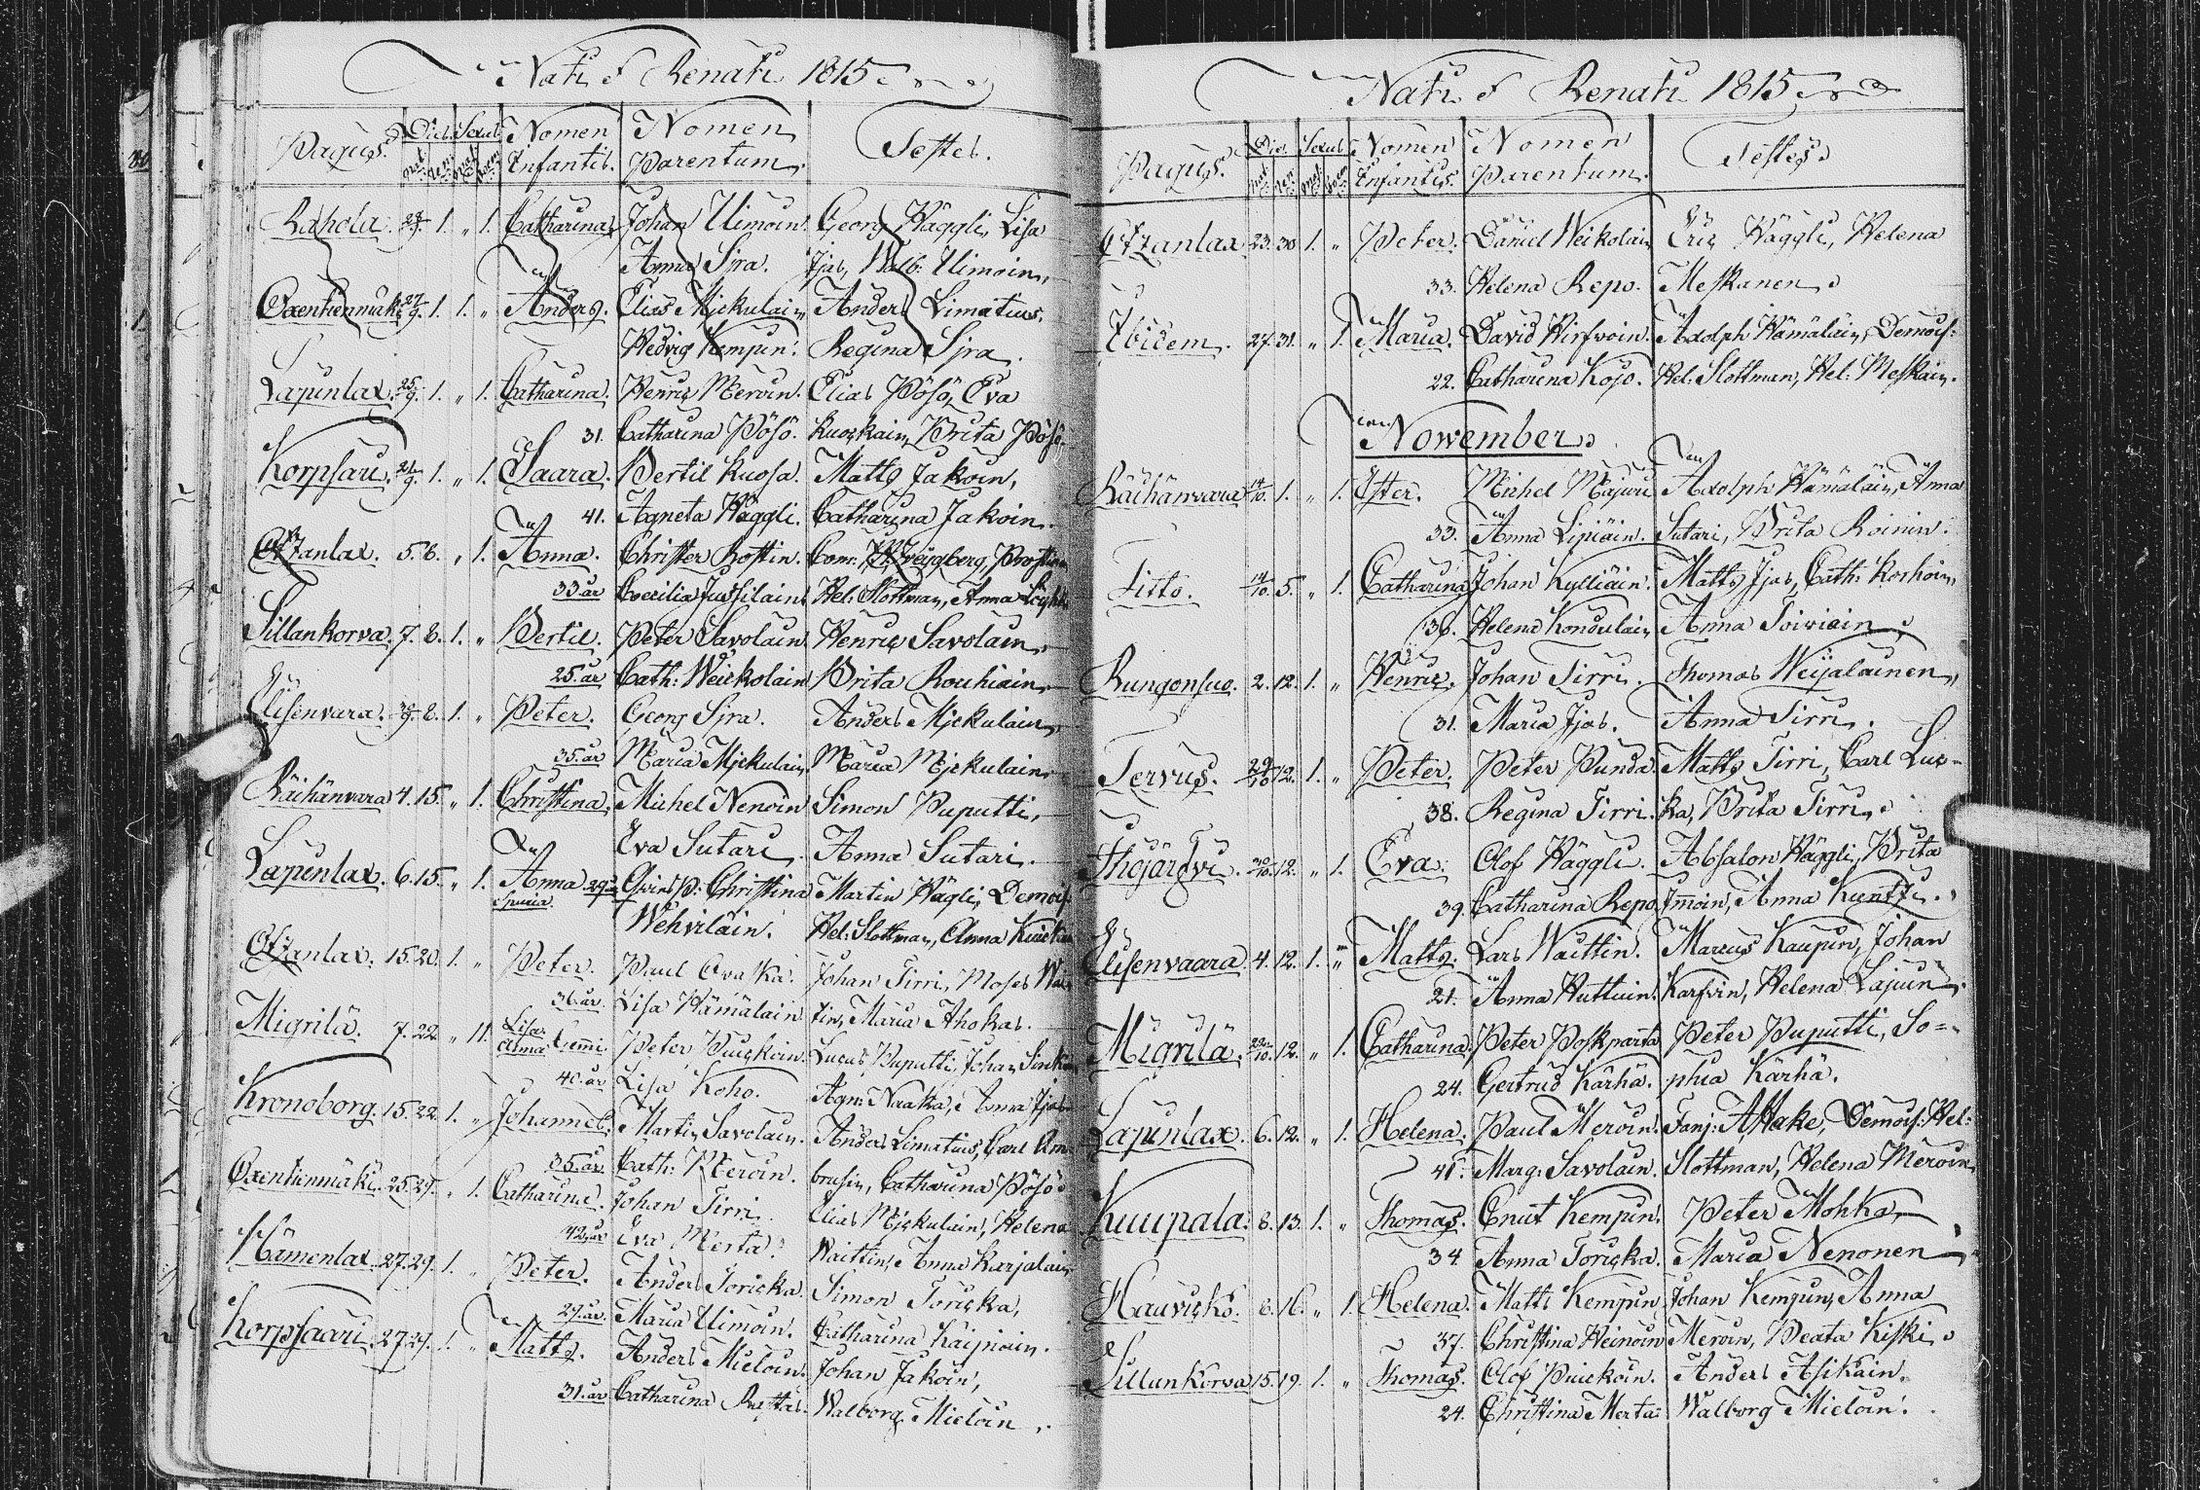 Nati & Renati 1815
Pagus. Dies. Sexus Nomen Nomen Testes.
nat. ren. mas. foem. Infantis. Parentum.
Rahola. 29/9. 1. „ 1. Catharina. Johan Uimoin. Georg Häggli, Lisa
Anna Sjra. Ijas, Walb: Uimoin.
Oxentienmäki 27/9. 1. 1. „ Anders. Elias Mickulain. Anders Limatius,
Hedvig Kempin. Regina Sjra.
Lapinlax. 25/9. 1. „ 1. Catharina. Henric Meroin. Elias Pösö, Eva
31. Catharina Pösö. Kuockain, Brita Pösö.
Korpsari. 21/9. 1. „ 1. Saara. Bertil Kuosa. Matts Jakoin,
41. Agneta Häggli. Catharina Jakoin.
Otzanlax. 5. 6. „ 1. Anna. Christer Rottin.
33. år Coecilia Jussilain. Hel: Slottman, Anna
Sillankorva. 7. 8. 1. „ Bertil. Peter Savolain. Henric Savolain,
25. år Cath: Weickolain Brita Rouhiain.
Elisenvara. 8. 1. „ Peter. Georg Sjra. Anders Mickulain,
35. år Maria Mickulain. Maria Mickulain.
Räihänvara 4. 15. „ 1. Christina. Michel Nenoin Simon Puputti,
Eva Sutari. Anna Sutari.
Lapinlax. 6. 15. „ 1. Anna 29. Christina Martin Hägli, Demois:
Spuria. Wehviläin. Hel: Slottman, Anna
Otzanlax. 15. 20. 1. „ Peter. Paul Avaska. Johan Tirri, Moses Wai-
36. år. Lisa Hämäläin tin, Maria Ahokas.
Migrilä. 7. 22. „ 11. Lisa Anna Gemi Peter Puickoin. Lucas Puputti, Johan
40. år Lisa Koho. Agn: Naaka, Anna Ijas
Kronoborg. 15. 22. 1. „ Johannes. Martin Savolain. Anders Limatius, Carl Am-
35. år Cath: Meroin. brusin, Catharina Pösö
Oxentienmäki. 25. 29. „ 1. Catharina. Johan Tirri. Elias Mickulain, Helena
42. år Eva Merta. Waittin, Anna Karjalain
Hämenlax. 27. 29. 1. „ Peter. Anders Toricka. Simon Toricka,
29. år. Maria Uimoin. Catharina Käipiain.
Korpsaari. 27. 29. 1. „ Matts. Anders Mieloin. Johan Jakoin,
31. år Catharina Rattas. Walborg Mieloin.
Nati & Renati 1815
Pagus. Dies. Sexus Nomen Nomen Testes
nat. ren. mas. foem. Infantis. Parentum.
Otzanlax 23. 30. 1. „ Peter. Daniel Weikolain Eric Häggli, Helena
33. Helena Repo. Meskanen
Ibidem. 27. 31. „ 1. Maria. David Hirfvoin. Adolph Hämäläin, Demois:
22. Catharina Kojo. Hel: Slottman, Hel: Meskain.
November
Räihänvara 14/10. 1. „ 1. Ester. Michel Majuri Adolph Hämäläin, Anna
33. Anna Lipiäin. Sutari, Brita Roinin.
Titto. 14/10. 5. „ 1. Catharina Johan Kylliäin. Matts Ijas, Cath: Korhoin,
36. Helena Kondulain Anna Soiviain
Rungonsuo. 2. 12. 1. „ Henric. Johan Tirri. Thomas Weijalainen,
31. Maria Ijas. Anna Tirri.
Tervus. 29/10 12. 1. „ Peter. Peter Punda. Matts Tirri, Carl Luc-
38. Regina Tirri. ka, Brita Tirri.
Ihojärfvi. 30/10. 12. „ 1. Eva. Olof Häggli. Absalon Häggli, Brita
39. Catharina Repo. Immoin, Anna Kuntzi.
Elisenvaara 4. 12. 1. „ Matts. Lars Waittin. Marcus Kaupin, Johan
21. Anna Huttuin. Karfvin, Helena Lajun
Migrilä. 29/10. 12. „ 1. Catharina Peter Poskparta Peter Puputti, So=
24. Gertrud Kärhä. phia Kärhä.
Lapinlax. 6. 12. „ 1. Helena. Paul Meroin. Fanj: A Hake, Demois: Hel:
41. Marg: Savolain. Slottman, Helena Meroin
Kuupala. 8. 13. 1. „ Thomas. Cnut Kempin. Peter Mohko,
34. Anna Toricka. Maria Nenonen
Hauvicko. 8. 16. „ 1. Helena. Matts Kempin Johan Kempin, Anna
37. Christina Heinoin Meroin, Beata Kiski
Sillankorva 15. 19. 1. „ Thomas. Olof Puickoin. Anders Asikain,
24. Christina Merta. Walborg Mieloin.